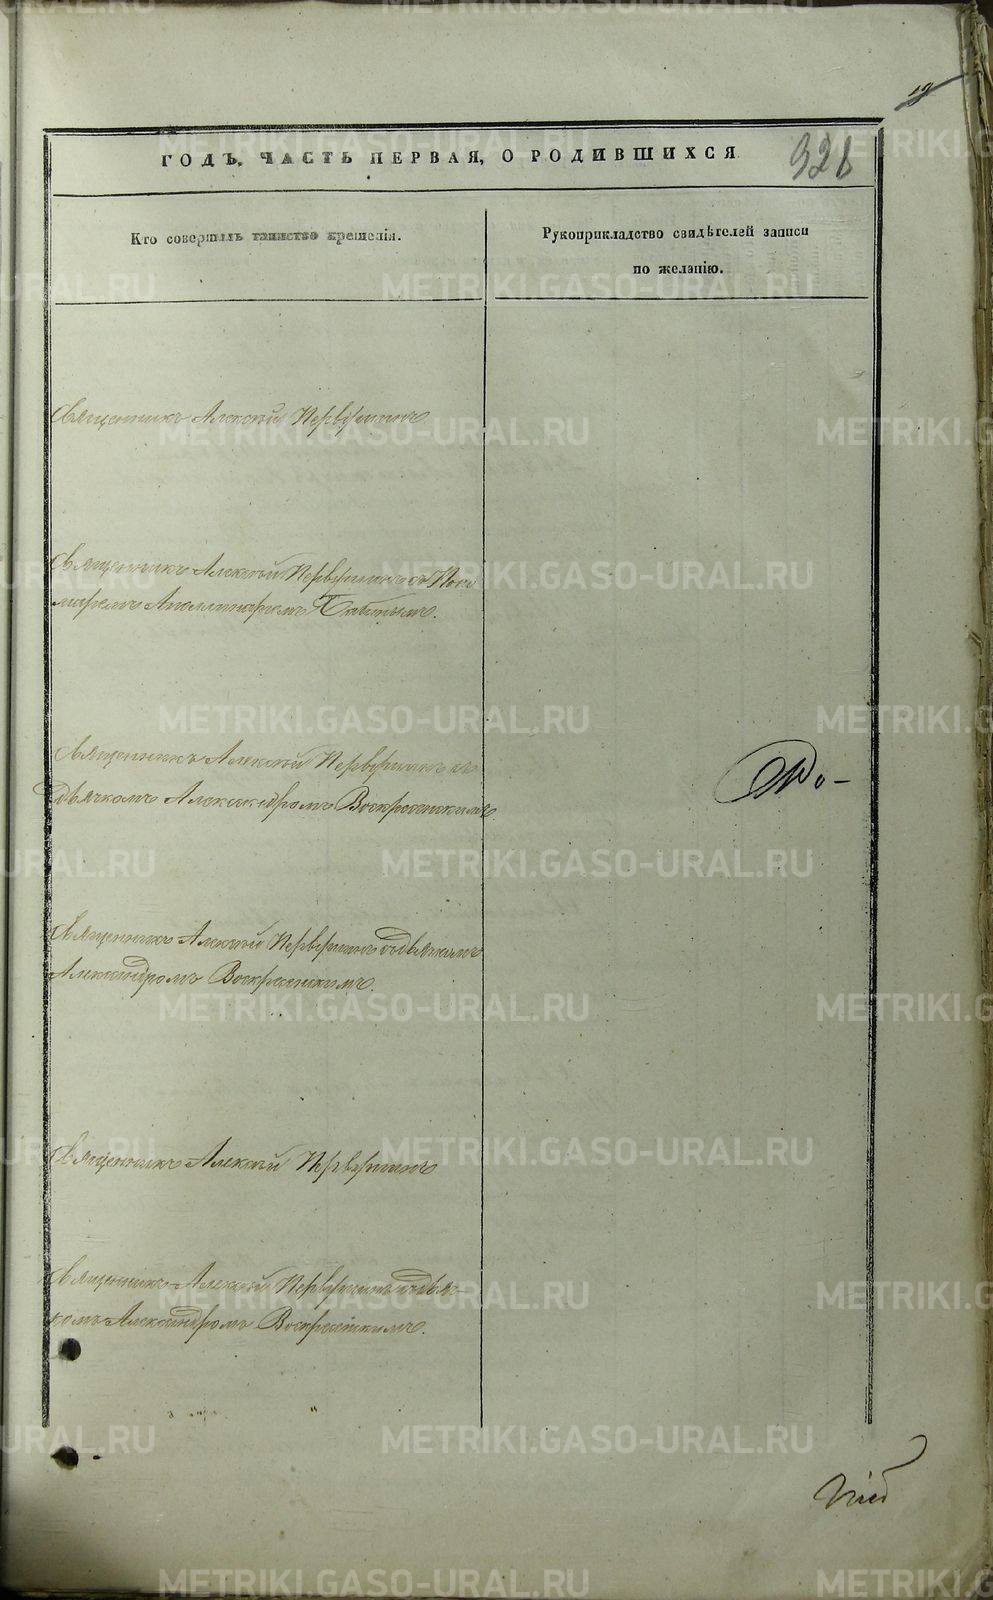 19
328
ГОДЪ, ЧАСТЬ ПЕРВАЯ, О РОДИВШИХСЯ
Кто совершилъ таинство крещенія.
Рукоприкладство свидѣтелей записи
по желанію.
Священникъ Алексѣй Первушинъ
Священникъ Алексѣй Первушинъ съ Поно
маремъ Аполлинаріемъ Бабинымъ.
Священникъ Алексѣй Первушинъ съ
дьячкомъ Александромъ Воскресенскимъ
Священникъ Алексѣй Первушинъ съ дьячкомъ
Александромъ Воскресенскимъ.
Священникъ Алексѣй Первушинъ
Священникъ Алексѣй Первушинъ съ дьяч
комъ Александромъ Воскресенскимъ.
METRIKI.GASO-URAL.RU